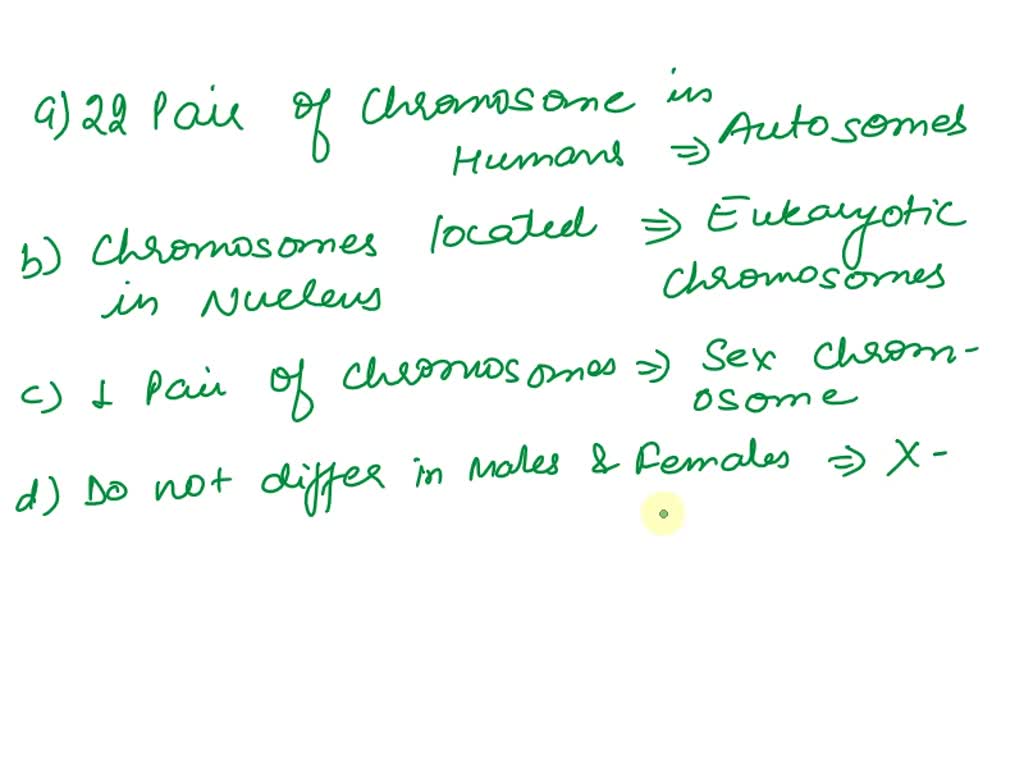 a) 22 Pair of Chromosome in
Humans ⇒ Autosomes
b) Chromosomes located ⇒ Eukaryotic
in Nucleus chromosomes
c) 1 Pair of chromosomes ⇒ Sex chrom-
osome
d) Do not differ in Males & Females ⇒ X-